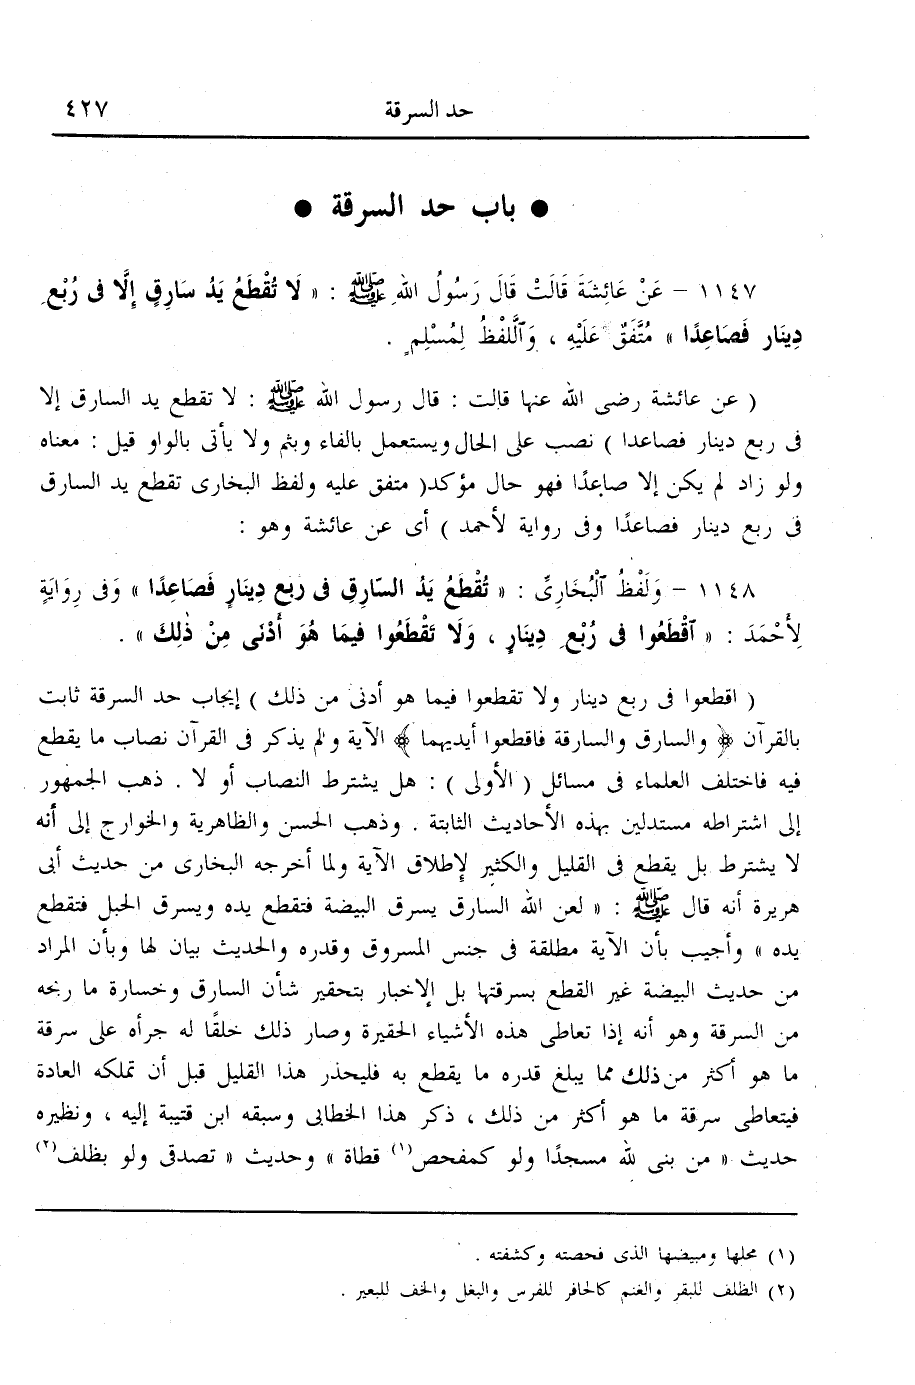 حد السرقة ٤٢٧
● باب حد السرقة ●
١١٤٧ – عَنْ عَائِشَةَ قَالَتْ قَالَ رَسُولُ اللهِ ﷺ : « لَا تُقْطَعُ يَدُ سَارِقٍ إِلَّا فى رُبْعِ
دِينَارٍ فَصَاعِدًا » مُتَّفَقٌ عَلَيْهِ ، وَٱللَّفْظُ لِمُسْلِمٍ .
( عن عائشة رضى الله عنها قالت : قال رسول الله ﷺ : لا تقطع يد السارق إلا
فى ربع دينار فصاعدا ) نصب على الحال ويستعمل بالفاء وبثم ولا يأتى بالواو قيل : معناه
ولو زاد لم يكن إلا صاعدًا فهو حال مؤكد( متفق عليه ولفظ البخارى تقطع يد السارق
فى ربع دينار فصاعدًا وفى رواية لأحمد ) أى عن عائشة وهو :
١١٤٨ – وَلَفْظُ ٱلْبُخَارِىِّ : « تُقْطَعُ يَدُ السَّارِقِ فى ربع دِينَارٍ فَصَاعِدًا » وَفى رِوَايَةٍ
لِأَحْمَدَ : « ٱقْطَعُوا فى رُبْعِ دِينَارٍ ، وَلَا تَقْطَعُوا فِيمَا هُوَ أَدْنَى مِنْ ذٰلِكَ » .
( اقطعوا فى ربع دينار ولا تقطعوا فيما هو أدنى من ذلك ) إيجاب حد السرقة ثابت
بالقرآن ﴿ والسارق والسارقة فاقطعوا أيديهما ﴾ الآية ولم يذكر فى القرآن نصاب ما يقطع
فيه فاختلف العلماء فى مسائل ( الأولى ) : هل يشترط النصاب أو لا . ذهب الجمهور
إلى اشتراطه مستدلين بهذه الأحاديث الثابتة . وذهب الحسن والظاهرية والخوارج إلى أنه
لا يشترط بل يقطع فى القليل والكثير لإطلاق الآية ولما أخرجه البخارى من حديث أبى
هريرة أنه قال ﷺ : « لعن الله السارق يسرق البيضة فتقطع يده ويسرق الحبل فتقطع
يده » وأجيب بأن الآية مطلقة فى جنس المسروق وقدره والحديث بيان لها وبأن المراد
من حديث البيضة غير القطع بسرقتها بل الإخبار بتحقير شأن السارق وخسارة ما ربحه
من السرقة وهو أنه إذا تعاطى هذه الأشياء الحقيرة وصار ذلك خلقًا له جرأه على سرقة
ما هو أكثر من ذلك مما يبلغ قدره ما يقطع به فليحذر هذا القليل قبل أن تملكه العادة
فيتعاطى سرقة ما هو أكثر من ذلك ، ذكر هذا الخطابى وسبقه ابن قتيبة إليه ، ونظيره
حديث « من بنى لله مسجدًا ولو كمفحص(١) قطاة » وحديث « تصدقى ولو بظلف(٢)
(١) محلها ومبيضها الذى فحصته وكشفته .
(٢) الظلف للبقر والغنم كالحافر للفرس والبغل والخف للبعير .